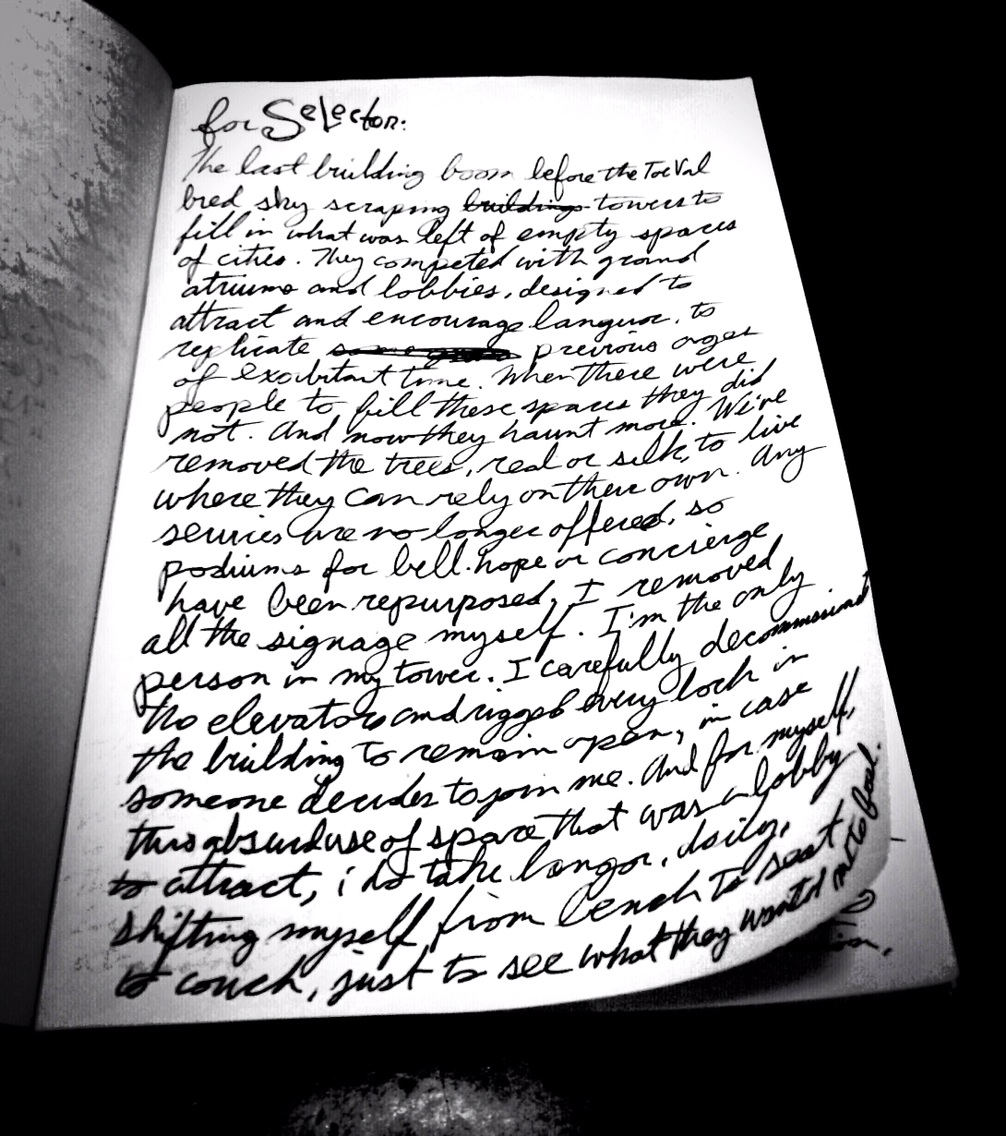 for SeLector:
The last building boom before the ToeVal
bred sky scraping buildings towers to
fill in what was left of empty spaces
of cities. They competed with grand
atriums and lobbies, designed to
attract and encourage languor, to
replicate some previous ages
of exorbitant time. When there were
people to fill these spaces they did
not. And now they haunt more. We've
removed the trees, real or silk, to live
where they can rely on their own. Any
services are no longer offered, so
podiums for bell-hops or concierge
have been repurposed, I removed
all the signage myself. I'm the only
person in my tower. I carefully decommissioned
the elevators and rigged every lock in
the building to remain open, in case
someone decides to join me. And for myself,
this absurd use of space that was a lobby
to attract, i do take langor, daily,
shifting myself from bench to seat
to couch, just to see what they wanted me to feel.